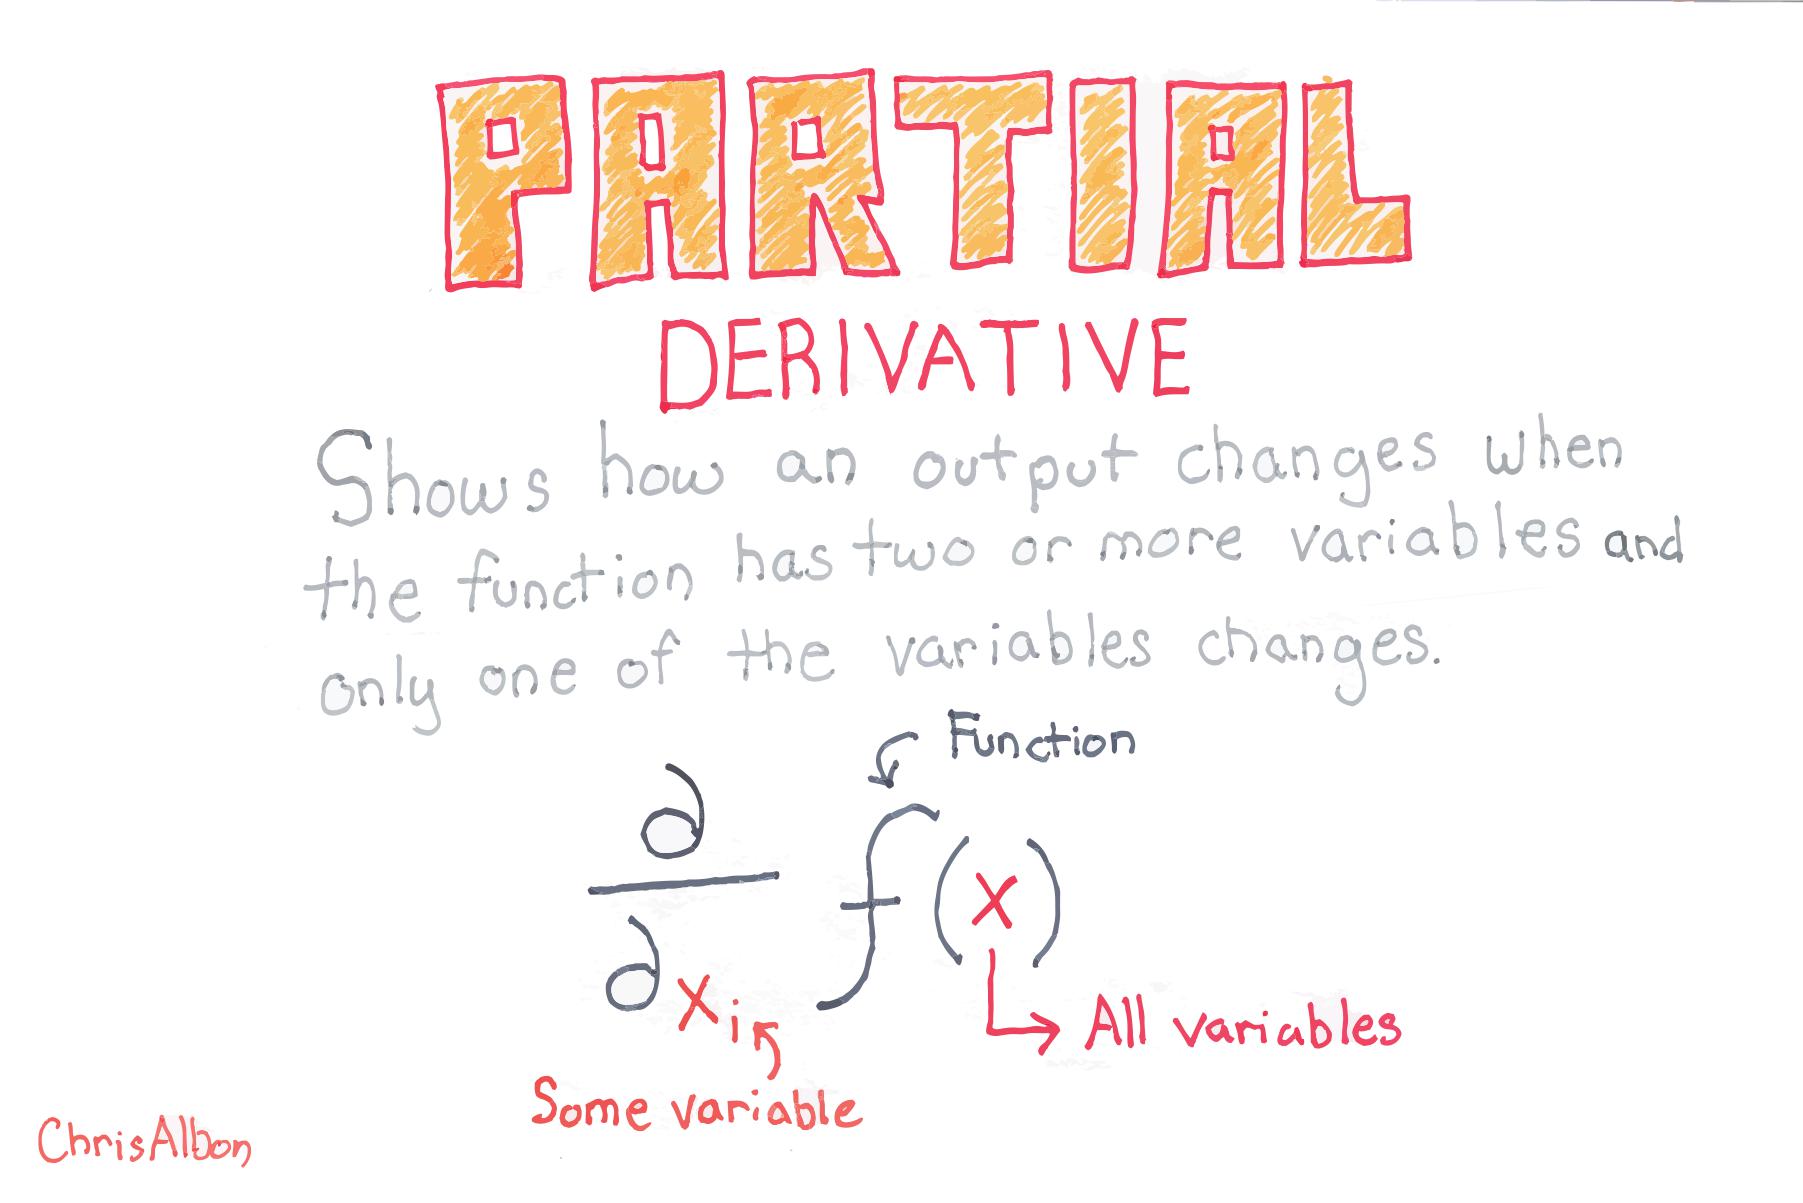 PARTIAL
DERIVATIVE
Shows how an output changes when
the function has two or more variables and
only one of the variables changes.
Function
∂
∂xi
f(x)
All variables
Some variable
ChrisAlbon